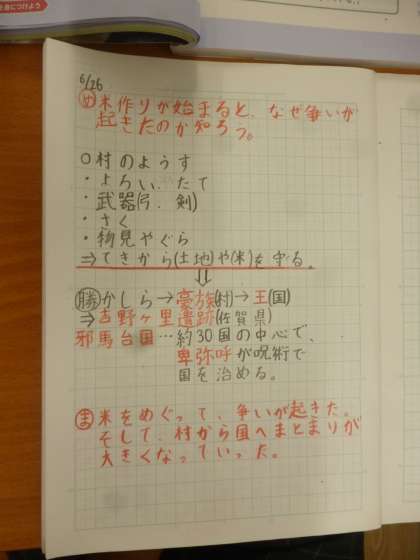 身につけよう
6/26
め 米作りが始まると、なぜ争いが
起きたのか知ろう。
○村のようす
・よろい、たて
・武器(弓、剣)
・さく
・物見やぐら
⇒てきから(土地)や(米)を守る。
⇓
勝 かしら→豪族(村)→王(国)
⇒吉野ヶ里遺跡(佐賀県)
邪馬台国…約30国の中心で、
卑弥呼が呪術で
国を治める。
ま 米をめぐって、争いが起きた。
そして、村から国へまとまりが
大きくなっていった。